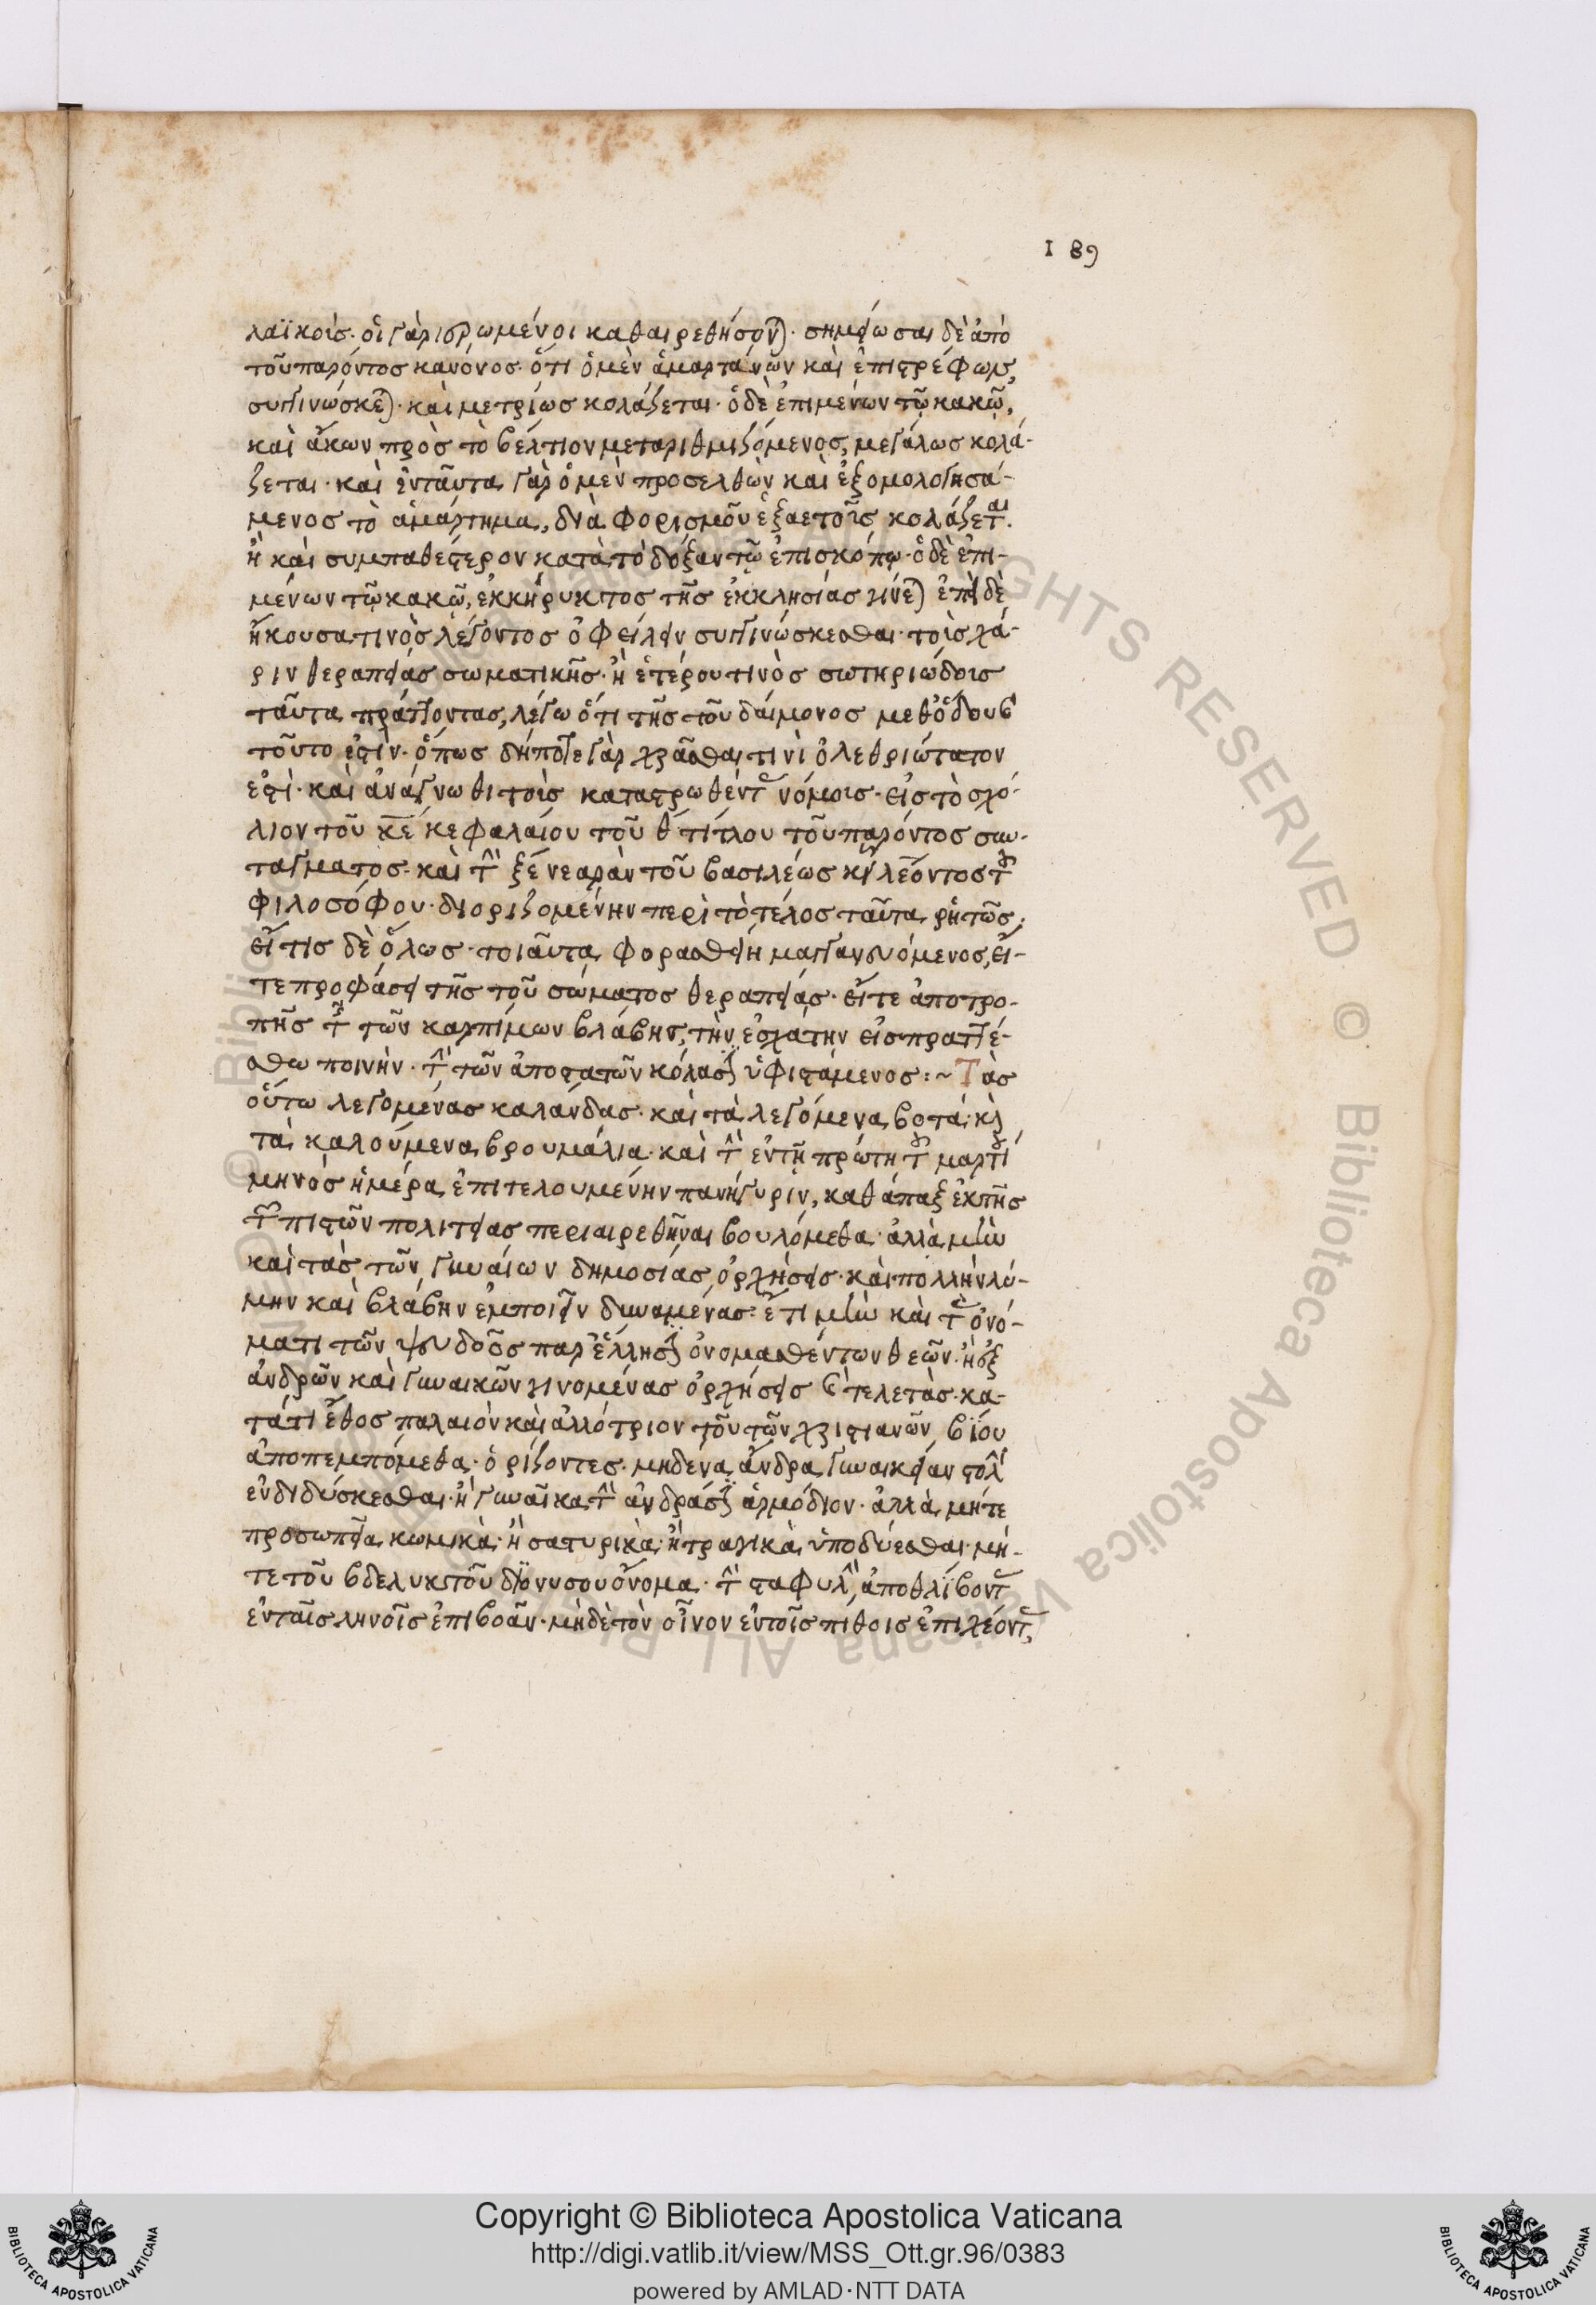 189
λαϊκοῖς· οἱ γὰρ ἱερωμένοι καθαιρεθήσονται· σημείωσαι δὲ ἀπὸ
τοῦ παρόντος κανόνος· ὅτι ὁ μὲν ἁμαρτάνων καὶ ἐπιστρέφων,
συγγινώσκεται· καὶ μετρίως κολάζεται· ὁ δὲ ἐπιμένων τῷ κακῷ,
καὶ ἄκων πρὸς τὸ βέλτιον μεταριθμιζόμενος, μεγάλως κολά-
ζεται· καὶ ἐνταῦτα γὰρ ὁ μὲν προσελθὼν καὶ ἐξομολογησά-
μενος τὸ ἁμάρτημα, διὰ φορισμοῦ ἑξαετοῦς κολάζεται·
ἢ καὶ συμπαθέστερον κατὰ τὸ δόξαν τῷ ἐπισκόπῳ· ὁ δὲ ἐπι-
μένων τῷ κακῷ, ἐκκήρυκτος τῆς ἐκκλησίας γίνεται ἐπεὶ δὲ
ἤκουσα τινὸς λέγοντος ὀφείλειν συγγινώσκεσθαι τοῖς χά-
ριν θεραπείας σωματικῆς· ἢ ἑτέρου τινὸς σωτηριώδους
ταῦτα πράττοντας, λέγω ὅτι τῆς τοῦ δαίμονος μεθόδου
τοῦτο ἐστίν· ὅπως δήποτε γὰρ χρᾶσθαι τινὶ ὀλεθριώτατον
ἐστί· καὶ ἀνάγνωθι τοῖς καταστρωθέντας νόμοις· εἰς τὸ σχό-
λιον τοῦ κε κεφαλαίου τοῦ θ τίτλου τοῦ παρόντος συν-
τάγματος· καὶ τὴν ξε νεαρὰν τοῦ βασιλέως κυροῦ λέοντος τοῦ
φιλοσόφου· διοριζομένην περὶ τὸ τέλος ταῦτα ῥητῶς·
εἴ τις δὲ ὅλως τοιαῦτα φορασθείη μαγγανευόμενος, εἴ-
τε προφάσει τῆς τοῦ σώματος θεραπείας· εἴτε ἀποτρο-
πῆς τῆς τῶν καρπίμων βλάβης, τὴν ἐσχάτην εἰσπραττέ-
σθω ποινὴν· τὴν τῶν ἀποστατῶν κόλασιν ὑφιστάμενος :~ Τὰς
οὕτω λεγομένας καλάνδας· καὶ τὰ λεγόμενα βοτά· καὶ
τὰ καλούμενα βρουμάλια· καὶ τὴν ἐν τῇ πρώτη τοῦ μαρτίου
μηνὸς ἡμέρα ἐπιτελουμένην πανήγυριν, καθάπαξ ἐκ τῆς
τῶν πιστῶν πολιτείας περιαιρεθῆναι βουλόμεθα· ἀλλὰ μὴν
καὶ τὰς τῶν γυναίων δημοσίας ὀρχήσεις· καὶ πολλὴν λύ-
μην καὶ βλάβην ἐμποιεῖν δυναμένας· ἔτι μὴν καὶ τὰς ὀνό-
ματι τῶν ψευδοῦς παρ' ἕλλησιν ὀνομασθέντων θεῶν· ἢ ἐξ
ἀνδρῶν καὶ γυναικῶν γινομένας ὀρχήσεις καὶ τελετὰς· κα-
τά τι ἔθος παλαιὸν καὶ ἀλλότριον τοῦ τῶν χριστιανῶν βίου
ἀποπεμπόμεθα· ὁρίζοντες· μηδένα ἄνδρα γυναικείαν στολὴν
ἐνδιδύσκεσθαι· ἢ γυναῖκα τὴν ἀνδράσιν ἁρμόδιον· ἀλλὰ μήτε
προσωπεῖα κωμικὰ· ἢ σατυρικὰ· ἢ τραγικὰ ὑποδύεσθαι· μή-
τε τοῦ βδελυκτοῦ διονύσου ὄνομα· τὴν σταφυλὴν ἀποθλίβοντας
ἐν ταῖς ληνοῖς ἐπιβοᾶν· μὴδὲ τὸν οἶνον ἐν τοῖς πίθοις ἐπιχέοντας,
Copyright © Biblioteca Apostolica Vaticana
http://digi.vatlib.it/view/MSS_Ott.gr.96/0383
powered by AMLAD·NTT DATA